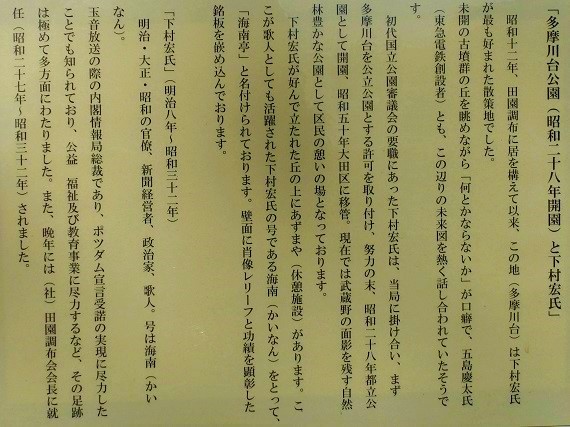 「多摩川台公園（昭和二十八年開園）と下村宏氏」
昭和十二年、田園調布に居を構えて以来、この地（多摩川台）は下村宏氏
が最も好まれた散策地でした。
未開の古墳群の丘を眺めながら「何とかならないか」が口癖で、五島慶太氏
（東急電鉄創設者）とも、この辺りの未来図を熱く話し合われていたそうで
す。
初代国立公園審議会の要職にあった下村宏氏は、当局に掛け合い、まず
多摩川台を公立公園とする許可を取り付け、努力の末、昭和二十八年都立公
園として開園、昭和五十年大田区に移管。現在では武蔵野の面影を残す自然
林豊かな公園として区民の憩いの場となっております。
下村宏氏が好んで立たれた丘の上にあずまや（休憩施設）があります。こ
こが歌人としても活躍された下村宏氏の号である海南（かいなん）をとって、
「海南亭」と名付けられております。壁面に肖像レリーフと功績を顕彰した
銘板を嵌め込んでおります。
「下村宏氏」（明治八年～昭和三十二年）
明治・大正・昭和の官僚、新聞経営者、政治家、歌人。号は海南（かい
なん）。
玉音放送の際の内閣情報局総裁であり、ポツダム宣言受諾の実現に尽力した
ことでも知られており、公益　福祉及び教育事業に尽力するなど、その足跡
は極めて多方面にわたりました。また、晩年には（社）田園調布会会長に就
任（昭和二十七年～昭和三十二年）されました。